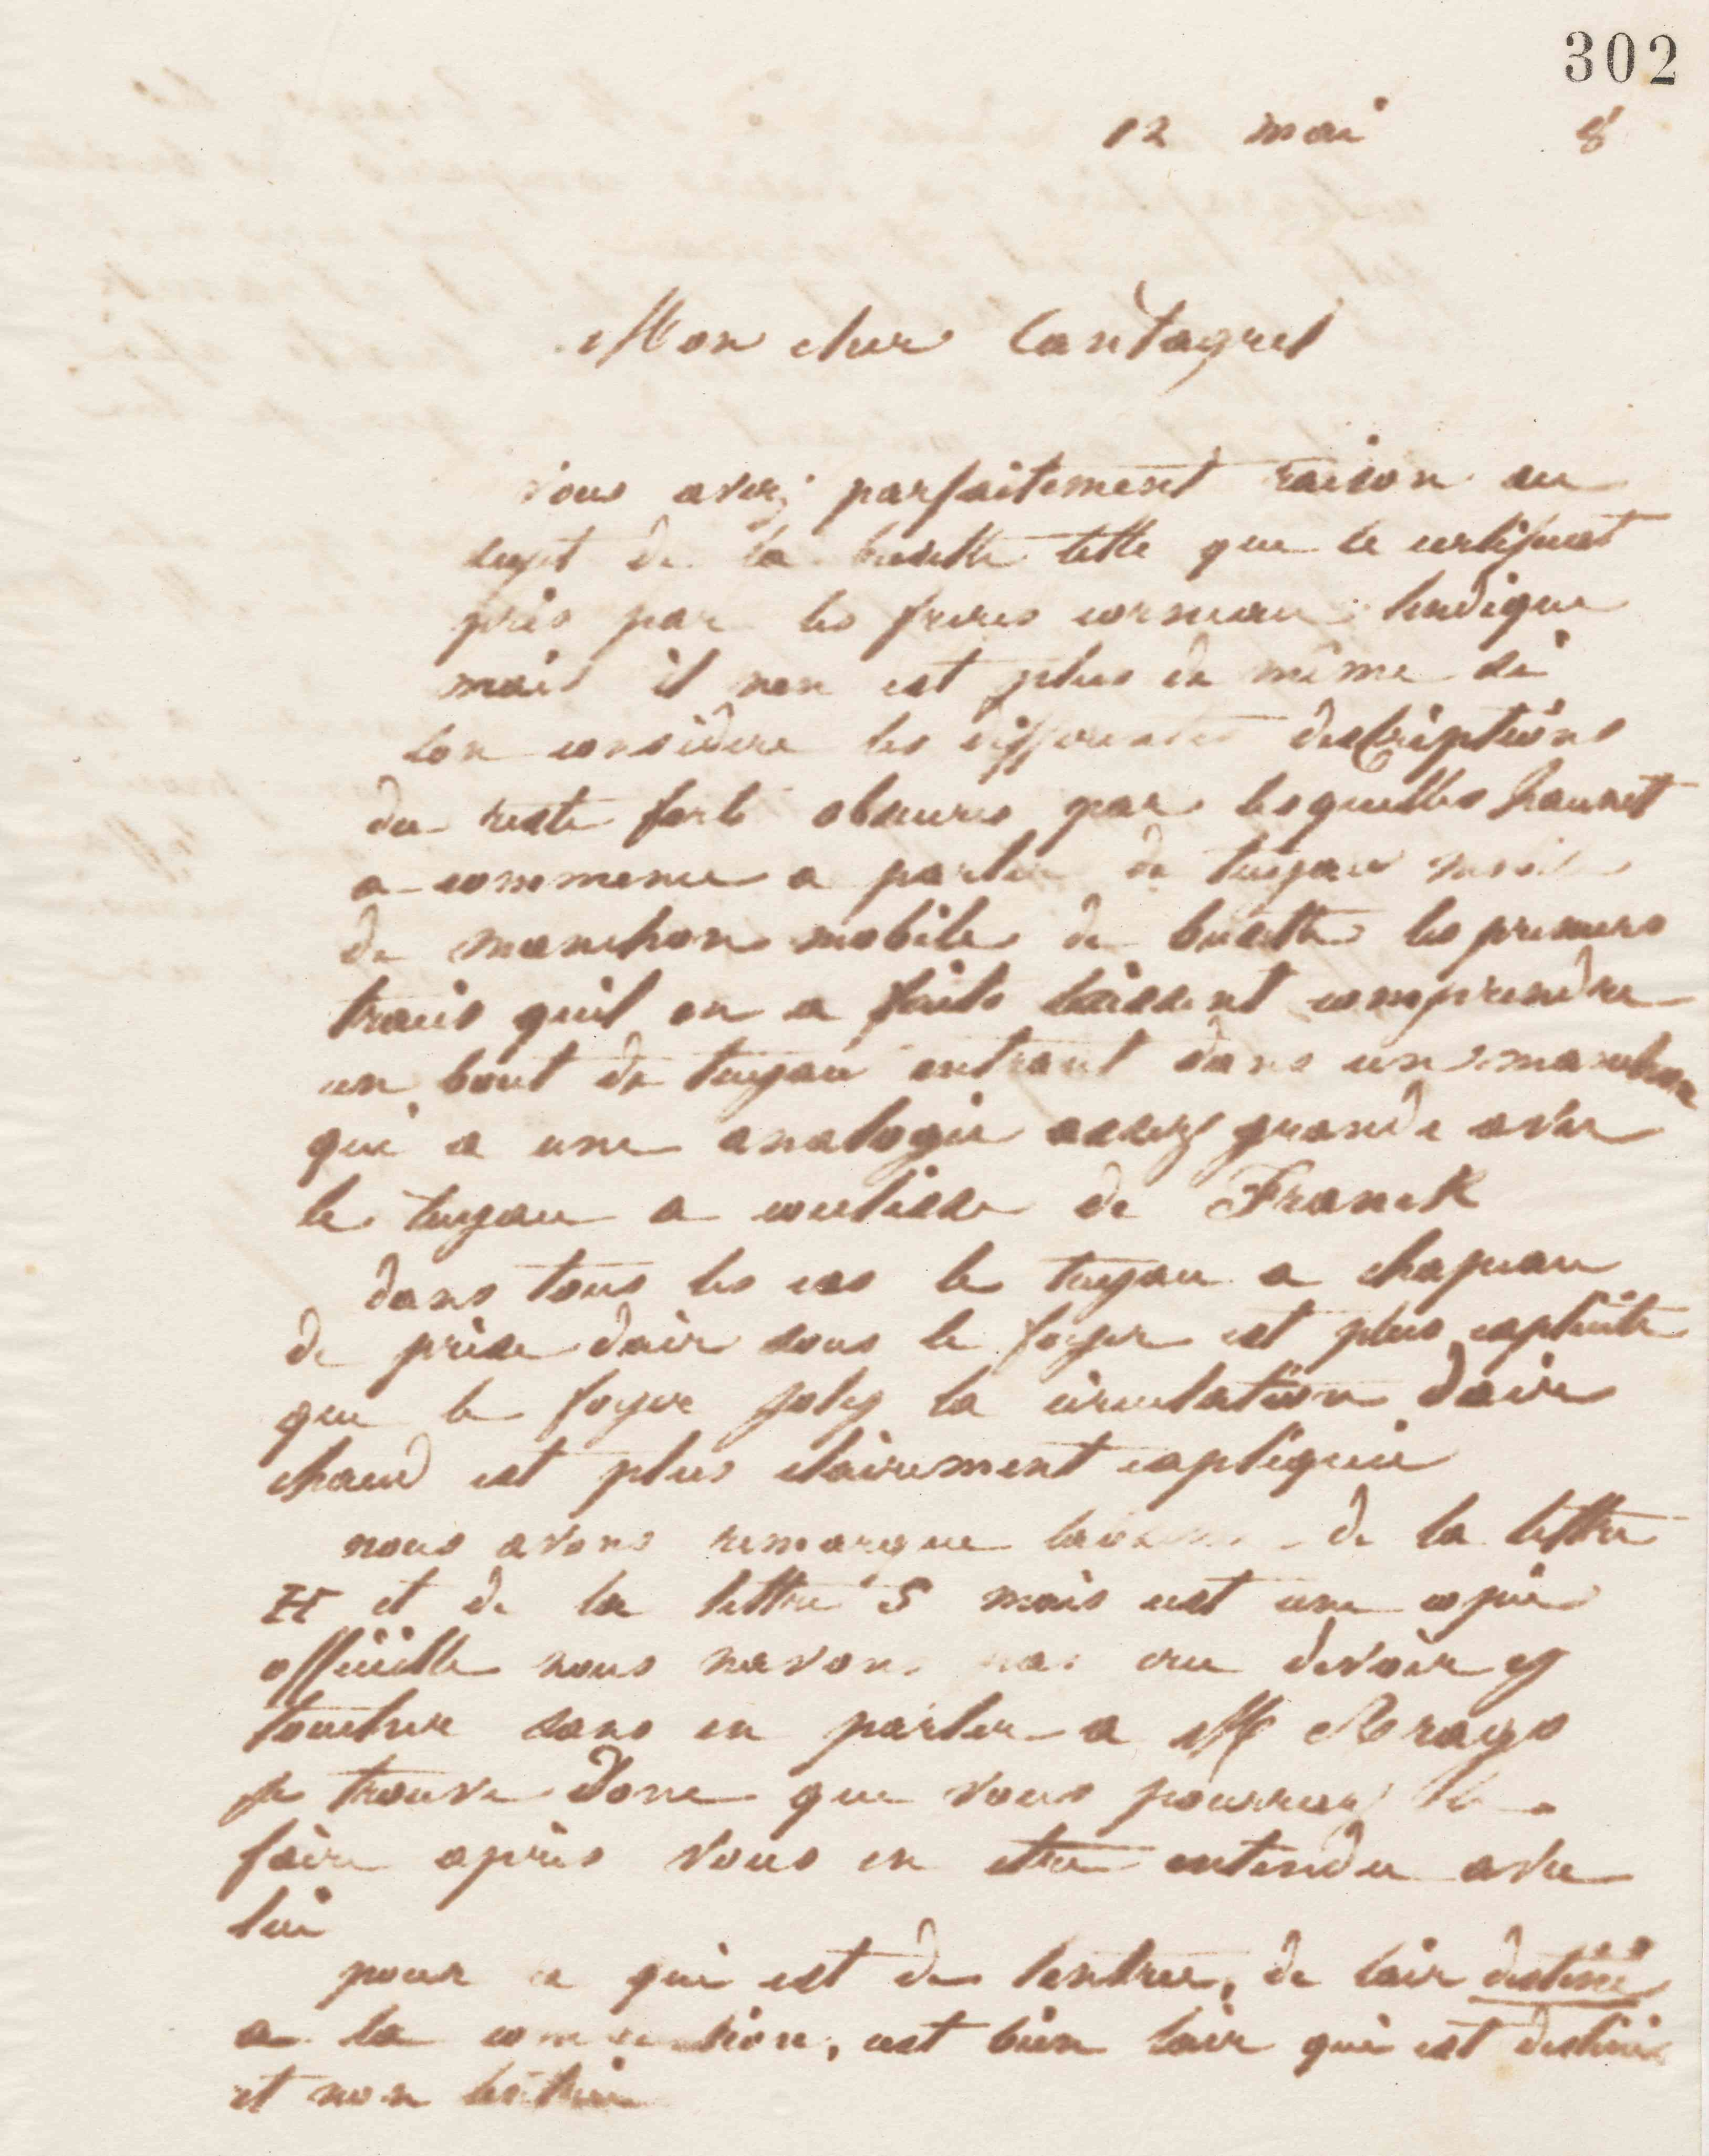 302
12 mai 8
Mon cher Cantagrel
vous avez parfaitement raison au
sujet de la buselle telle que le certificat
pris par les freres corneau lindique
mais il nen est plus de même si
lon considere les differentes descriptions
du reste fort obscures par lesquelles
a commence a parler de tuyau
de manchon mobile de buselle les premiers
trais quil en a faits laissent comprendre
un bout de tuyau entrant dans un manchon
qui a une analogie assez grande avec
le tuyau a coulisse de Franck
dans tous les cas le tuyau a chapeau
de prise dair sous le foyer est plus explicite
que le foyer Joly la circulation dair
chaud est plus clairement expliquée
nous avons remarque de la lettre
H et de la lettre S mais cest une copie
officielle nous navons pas cru devoir y
toucher sans en parler a M
je trouve donc que vous pourrez le
faire après vous en etre entendu avec
lui
pour ce qui est de lentree, de lair destiné
a la combustion, cest bien lair qui est destiné
et non lentrée